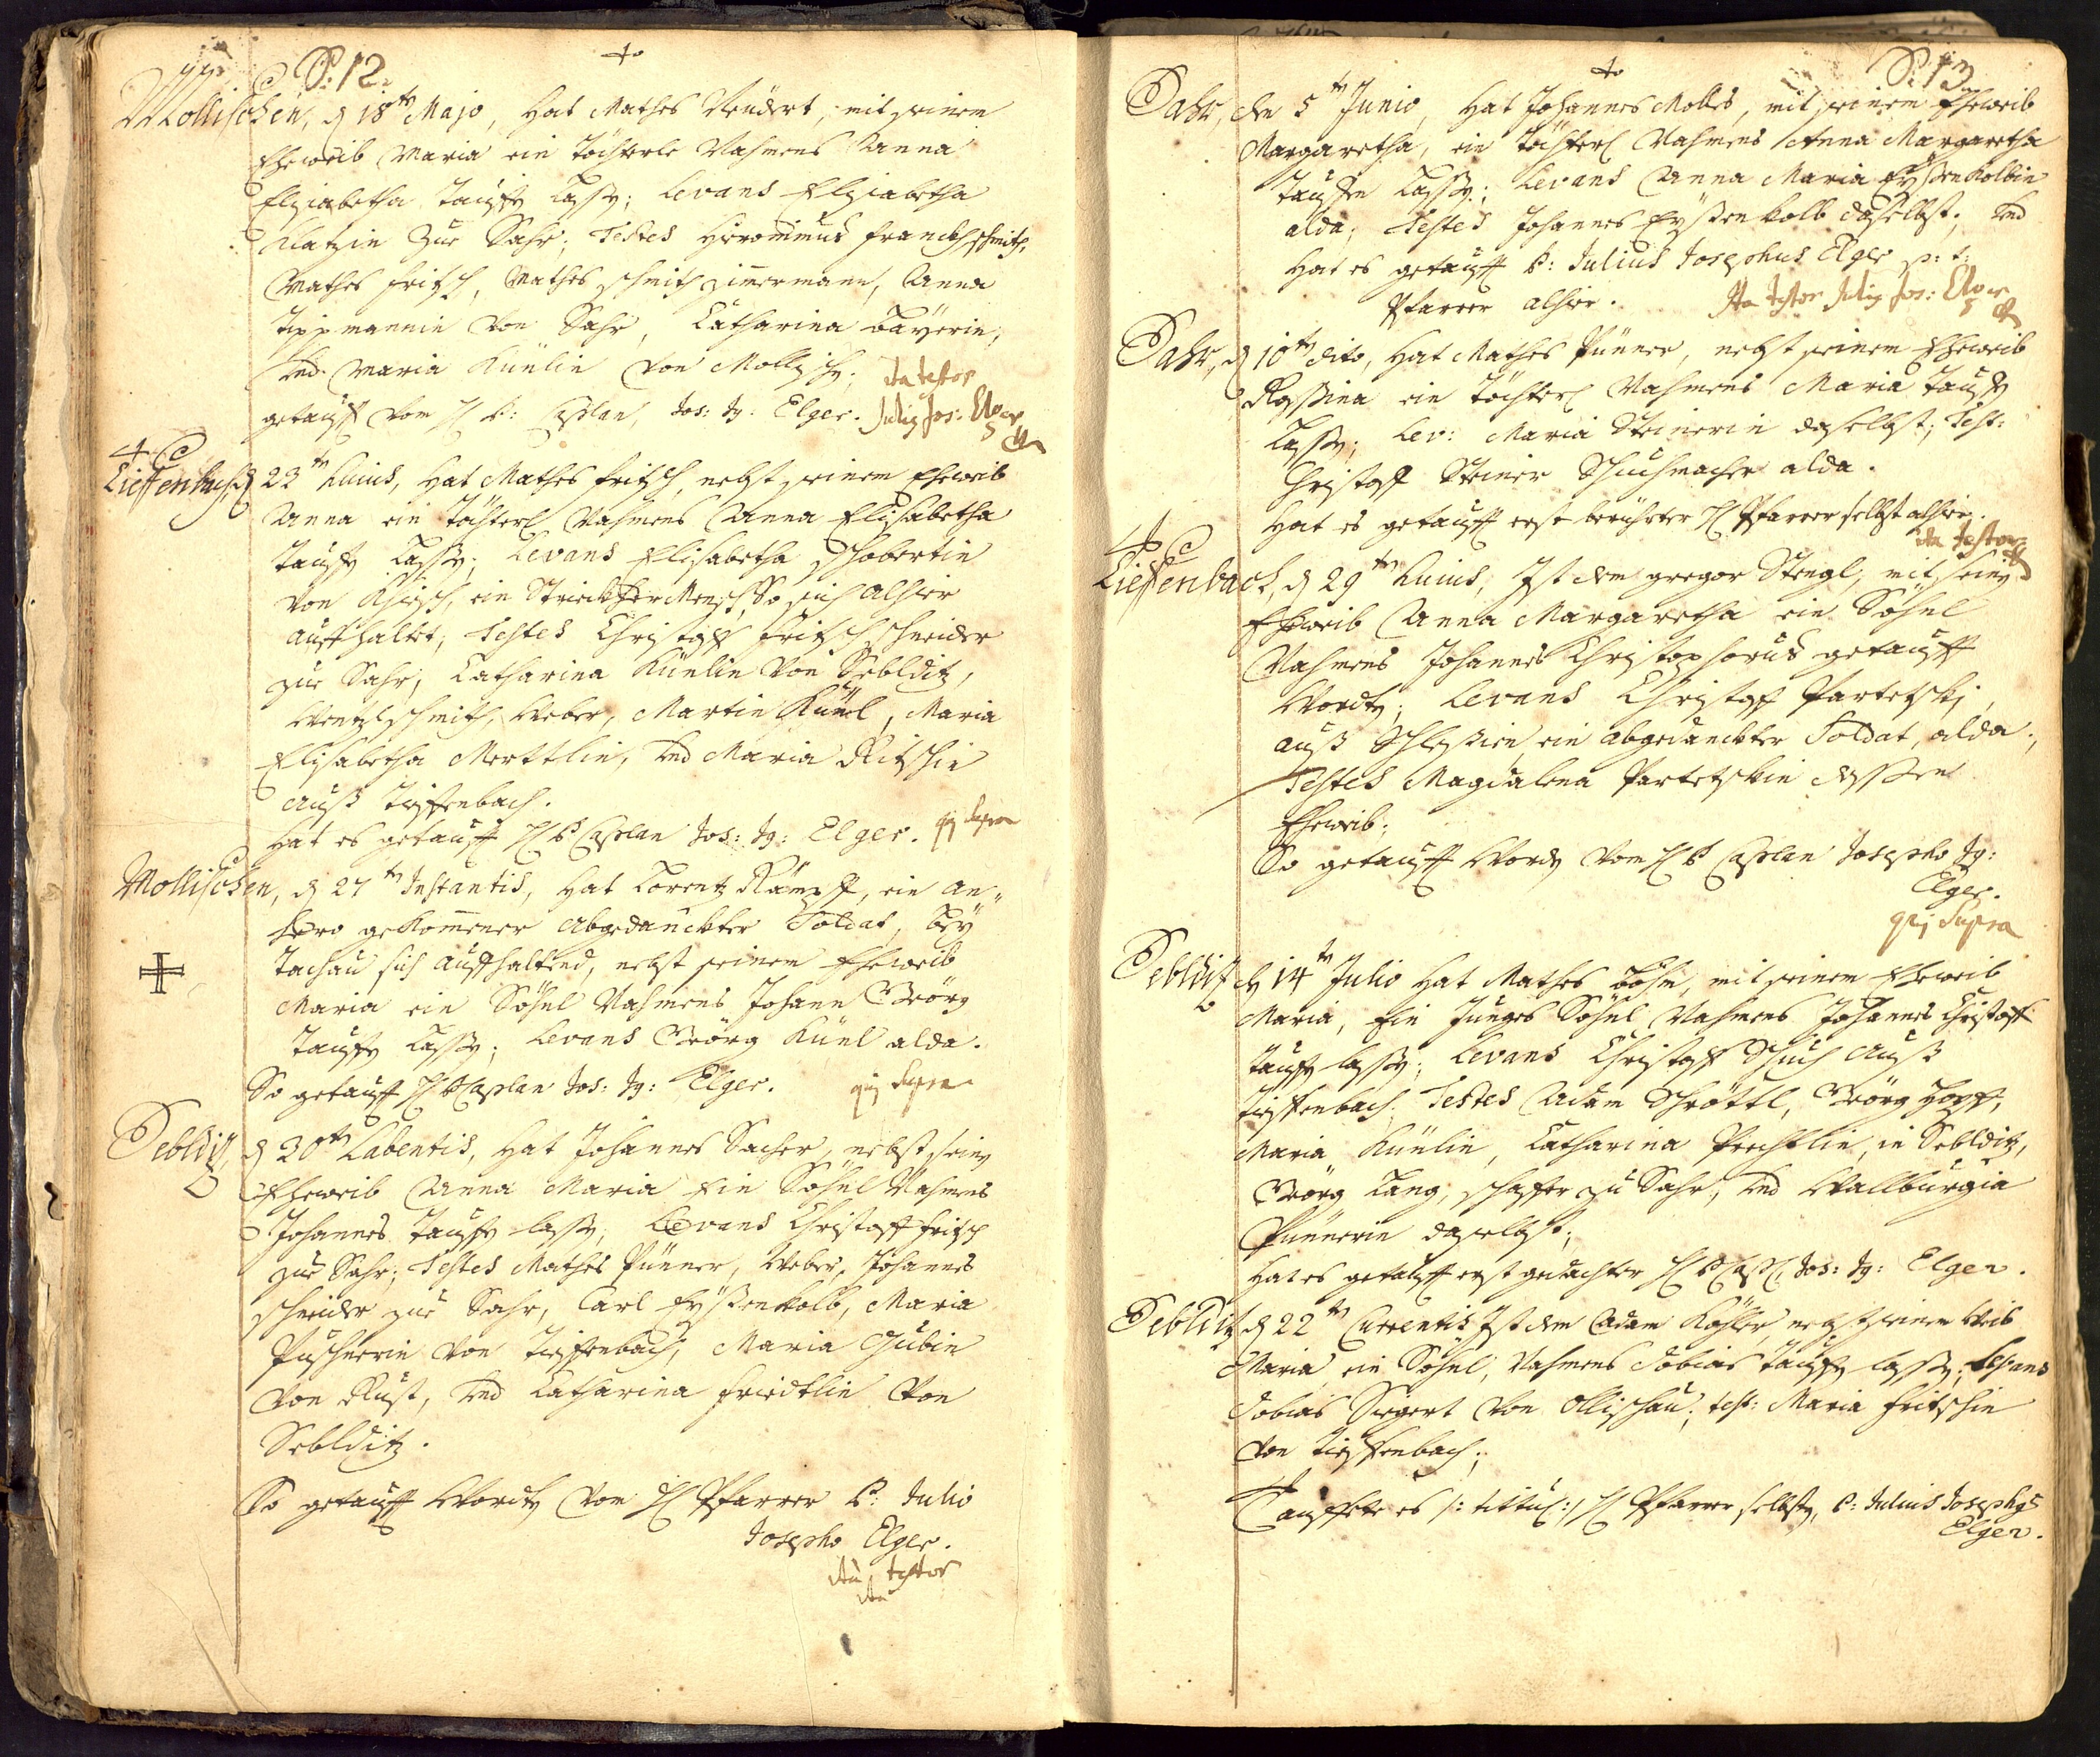 P: 12.
Mollischen, d 18ten Majo, Hat Mathes Neudert, mit seinem
Eheweib Maria ein Töchterle Nahmens Anna
Elisabetha Tauffen Lassen; Levans Elisabetha
zur Sahr; Testes Hieronimus Franckh schmith,
Mathes Fritsch, Mathes schmith Zimermann, Anna
Tippmannin von Sahr, Catharina Baÿerin,
Und Maria Künlin von Mollischen; ita testor
getaufft vom H P: Caplan, Jos: Ig: Elger. Julius Jos: Elger
Tieffenbach, d 23ten huius, Hat Mathes Fritsch, nebst seinem Eheweib
Anna ein Töchterl Nahmens Anna Elisabetha
Tauffen Lassen; Levans Elisabetha Schobertin
von ein Mensch So sich alhier
auffhaltet, Testes Christoff Fritsch schneider
zur Sahr, Catharina Künlin von Seblditz,
Wentzl schmith, Weber, Martin Künl, Maria
Elisabetha Merttlin, Und Maria Ritschin
auß Tieffenbach.
Hat es getaufft H P Caplan Jos: Ig: Elger. qui supra
Mollischen, d 27ten Instantis, Hat Lorentz Kämpff, ein an-
hero gekommener abgedanckter Soldat, beÿ
Tachau sich auffhaltend, nebst seinem Eheweib
Maria ein Söhnl Nahmens Johann Geörg
Tauffen Lassen; Levans Geörg Künl alda.
So getaufft H P Caplan Jos: Ig: Elger. qui supra
Seblditz, d 30ten Labentis, Hat Johannes Sacher, nebst seinen
Eheweib Anna Maria Ein Söhnl Nahmens
Johannes Tauffen lassen; Levans Christoff Fritsch
zur Sahr; Testes Mathes Pünner, Weber, Johannes
schneider zur Sahr, Carl Eÿßenkolb, Maria
Puschnerin von Tieffenbach, Maria Gubin
von Rust, Und Catharina Friedtlin von
Seblditz.
So getaufft Worden von H Pfarrer P: Julio
Josepho Elger.
ita testor
P: 13
Sahr, den 5ten Junio, Hat Johannes Molles, mit seinem Eheweib
Margaretha, ein Töchterl Nahmens Anna Margaretha
Tauffen Lassen; Levans Anna Maria Eÿßenkolbin
alda; Testes Johannes Eÿßenkolb daselbst, Und
Hat es getaufft P: Julius Josephus Elger p: t:
Pfarrer alhier. Ita testor Julius Jos: Elger
Sahr, d 10ten dito, Hat Mathes Pünner, nebst seinem Eheweib
Rossina ein Töchterl Nahmens Maria Tauffen
Lassen; Lev: Maria Steinerin daselbst; Test:
Christoff Steiner Schuhmacher alda.
Hat es getaufft erst berührter H Pfarrer selbst alhier.
ita testor
Tieffenbach, d 29ten huius, Ist dem gregor Stengl, mit seinen
Eheweib Anna Margaretha ein Söhnl
Nahmens Johannes Christophorus getaufft
Worden; Levans Christoff Partetskj,
auß Schlessien ein abgedanckter Soldat, alda;
Testes Magdalena Partetskin dessen
Eheweib;
So getaufft Worden vom H P Caplan Josepho Ig:
Elger.
qui supra
Seblditz d 14ten Julio Hat Mathes Böhm, mit seinem Eheweib
Maria, Ein Junges Söhnl Nahmens Johannes Christoff
Tauffen lassen; Levans Christoff Schuch auß
Tieffenbach; Testes Adam Schröttl, Geörg Hopff,
Maria Künlin, Catharina Prechtlin, in Seblditz,
Geörg Lang, schaffer zu Sahr, Und Wallburgia
Pünnerin daselbst;
Hat es getaufft erst gedachter H P Capl: Jos: Ig: Elger.
Seblditz d 22ten Currentis Ist dem Adam Köhler, nebst seinem Weib
Maria ein Söhnl, Nahmens Tobias Tauffen lassen; Levans
Tobias Siegert von Ollischau; test: Maria Fritschin
von Tieffenbach;
Tauffete es /: titul: / H Pfarrer selbsten, P: Julius Josephus
Elger.